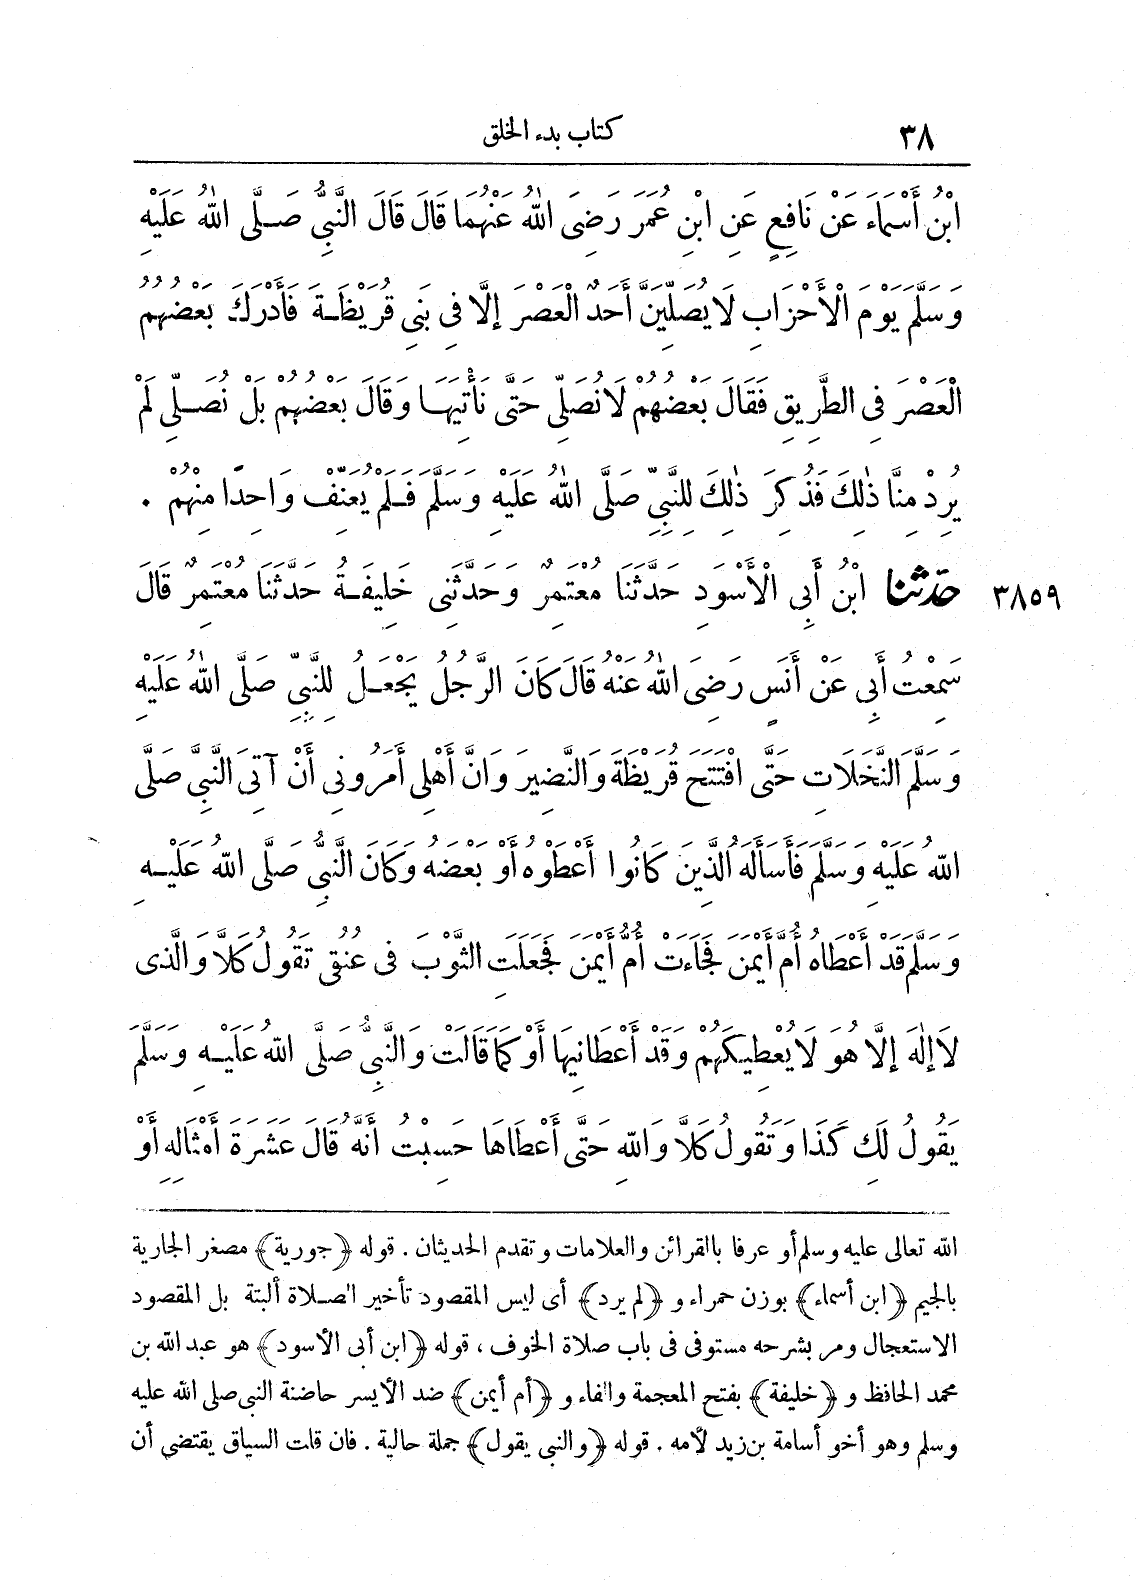 ٣٨ كتاب بدء الخلق
ابْنُ أَسْمَاءَ عَنْ نَافِعٍ عَنِ ابْنِ عُمَرَ رَضِىَ اللهُ عَنْهُمَا قَالَ قَالَ النَّبِىُّ صَلَّى اللهُ عَلَيْهِ
وَسَلَّمَ يَوْمَ الْأَحْزَابِ لَا يُصَلِّيَنَّ أَحَدٌ الْعَصْرَ إِلَّا فِى بَنِى قُرَيْظَةَ فَأَدْرَكَ بَعْضُهُمُ
الْعَصْرَ فِى الطَّرِيقِ فَقَالَ بَعْضُهُمْ لَا نُصَلِّى حَتَّى نَأْتِيَهَا وَقَالَ بَعْضُهُمْ بَلْ نُصَلِّى لَمْ
يُرِدْ مِنَّا ذٰلِكَ فَذُكِرَ ذٰلِكَ لِلنَّبِىِّ صَلَّى اللهُ عَلَيْهِ وَسَلَّمَ فَلَمْ يُعَنِّفْ وَاحِدًا مِنْهُمْ .
٣٨٥٩ حَدَّثَنَا ابْنُ أَبِى الْأَسْوَدِ حَدَّثَنَا مُعْتَمِرٌ وَحَدَّثَنِى خَلِيفَةُ حَدَّثَنَا مُعْتَمِرٌ قَالَ
سَمِعْتُ أَبِى عَنْ أَنَسٍ رَضِىَ اللهُ عَنْهُ قَالَ كَانَ الرَّجُلُ يَجْعَلُ لِلنَّبِىِّ صَلَّى اللهُ عَلَيْهِ
وَسَلَّمَ النَّخَلَاتِ حَتَّى افْتَتَحَ قُرَيْظَةَ وَالنَّضِيرَ وَانَّ أَهْلِى أَمَرُونِى أَنْ آتِىَ النَّبِىَّ صَلَّى
اللهُ عَلَيْهِ وَسَلَّمَ فَأَسْأَلَهُ الَّذِينَ كَانُوا أَعْطَوْهُ أَوْ بَعْضَهُ وَكَانَ النَّبِىُّ صَلَّى اللهُ عَلَيْهِ
وَسَلَّمَ قَدْ أَعْطَاهُ أُمَّ أَيْمَنَ فَجَاءَتْ أُمُّ أَيْمَنَ فَجَعَلَتِ الثَّوْبَ فِى عُنُقِى تَقُولُ كَلَّا وَالَّذِى
لَا إِلٰهَ إِلَّا هُوَ لَا يُعْطِيكَهُمْ وَقَدْ أَعْطَانِيهَا أَوْ كَمَا قَالَتْ وَالنَّبِىُّ صَلَّى اللهُ عَلَيْهِ وَسَلَّمَ
يَقُولُ لَكِ كَذَا وَتَقُولُ كَلَّا وَاللهِ حَتَّى أَعْطَاهَا حَسِبْتُ أَنَّهُ قَالَ عَشَرَةَ أَمْثَالِهِ أَوْ
الله تعالى عليه وسلم أو عرفا بالقرائن والعلامات وتقدم الحديثان . قوله ﴿جورية﴾ مصغر الجارية
بالجيم ﴿ابن أسماء﴾ بوزن حمراء و ﴿لم يرد﴾ أى ليس المقصود تأخير الصلاة ألبتة بل المقصود
الاستعجال ومر بشرحه مستوفى فى باب صلاة الخوف ، قوله ﴿ابن أبى الأسود﴾ هو عبد الله بن
محمد الحافظ و ﴿خليفة﴾ بفتح المعجمة والفاء و ﴿أم أيمن﴾ ضد الأيسر حاضنة النبى صلى الله عليه
وسلم وهو أخو أسامة بن زيد لأمه . قوله ﴿والنبى يقول﴾ جملة حالية . فان قلت السياق يقتضى أن